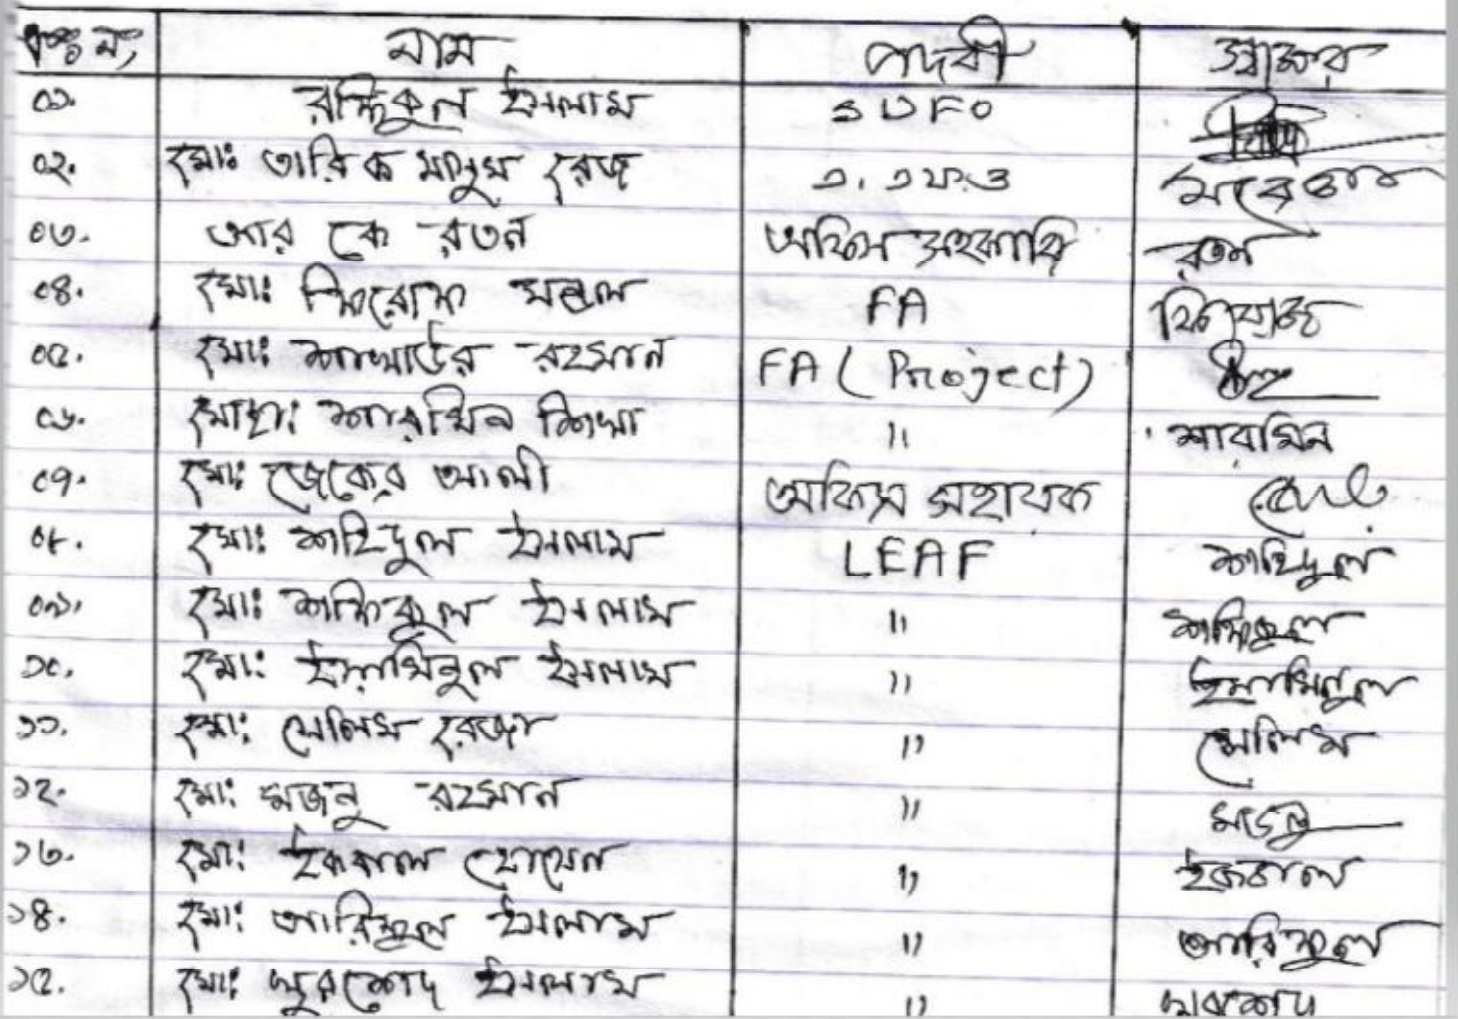 ক্রঃ নং নাম পদবী স্বাক্ষর
০১. রফিকুল ইসলাম SUFO
০২. মোঃ তারিক মাসুম রেজা এ.এফ.ও
০৩. আর কে রতন অফিস সহকারি রতন
০৪. মোঃ ফিরোজ মন্ডল FA ফিরোজ
০৫. মোঃ রহমান FA (Project)
০৬. মোছাঃ শারমিন শিখা " শারমিন
০৭. মোঃ জেকের আলী অফিস সহায়ক
০৮. মোঃ শহিদুল ইসলাম LEAF শহিদুল
০৯. মোঃ শফিকুল ইসলাম " শফিকুল
১০. মোঃ ইয়ামিনুল ইসলাম " ইয়ামিনুল
১১. মোঃ সেলিম রেজা " সেলিম
১২. মোঃ মজনু রহমান " মজনু
১৩. মোঃ ইকবাল হোসেন " ইকবাল
১৪. মোঃ আরিফুল ইসলাম " আরিফুল
১৫. মোঃ খুরশেদ ইসলাম "